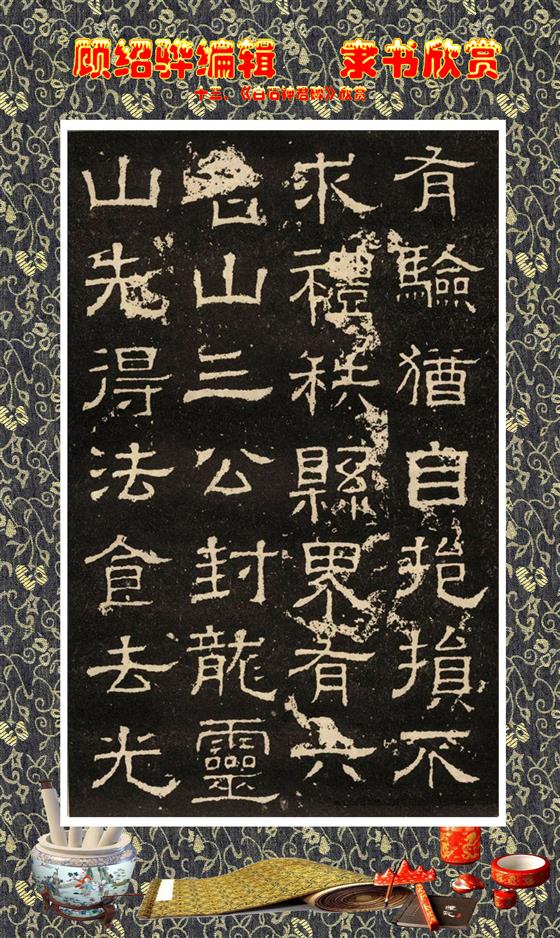 顾绍骅编辑 隶书欣赏
十三、《白石神君碑》欣赏
有驗猶自挹損不
求禮秩縣界有六
名山三公封龍靈
山先得法食去光